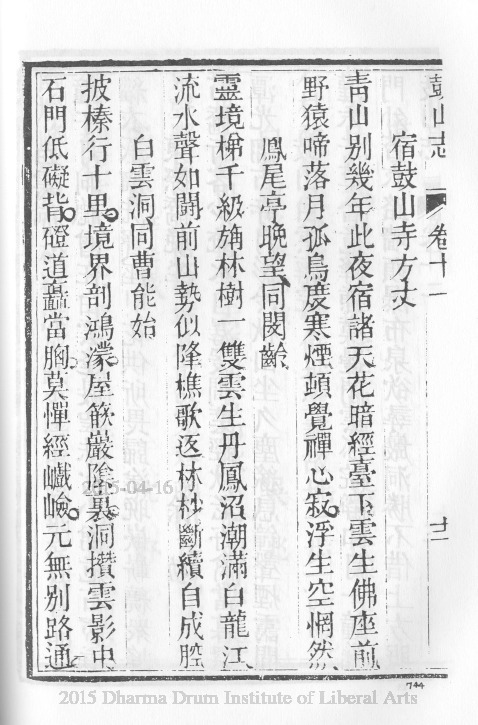 鼓山志 卷十一 十二
宿鼓山寺方丈
青山别幾年此夜宿諸天花暗經臺下雲生佛座前
野猿啼落月孤鳥度寒煙頓覺禪心寂浮生空惘然
鳳尾亭晚望同閔齡
靈境梯千級旃林樹一雙雲生丹鳳沼潮滿白龍江
流水聲如鬪前山勢似降樵歌返林杪斷續自成腔
白雲洞同曹能始
披榛行十里境界剖鴻濛屋簇巖陰裏洞攢雲影中
石門低礙背磴道矗當胸莫憚經巇嶮元無別路通
2015-04-16
2015 Dharma Drum Institute of Liberal Arts
744